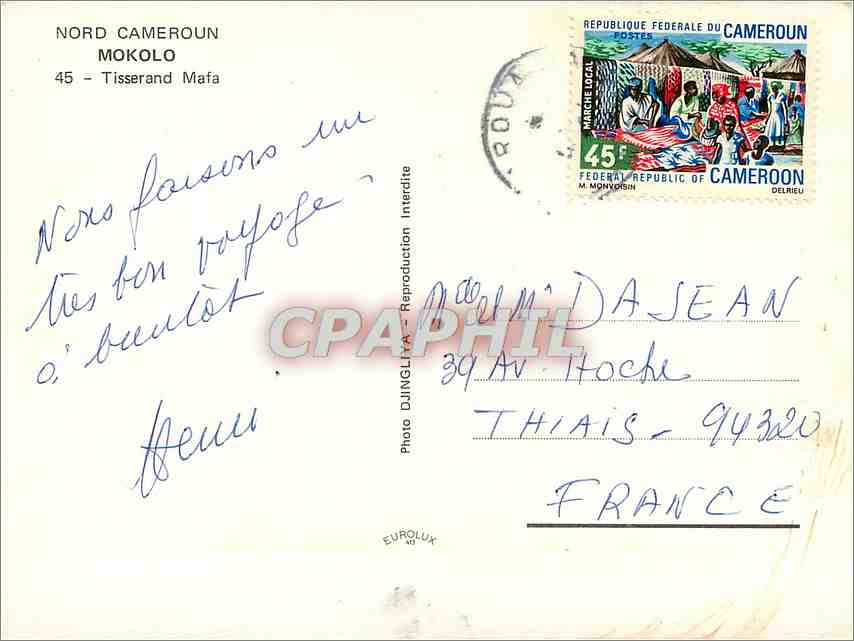 NORD CAMEROUN
MOKOLO
45 - Tisserand Mafa
Nous faisons un
très bon voyage
à bientôt
Henri
Photo DJINGLIYA - Reproduction Interdite
EUROLUX
413
REPUBLIQUE FEDERALE DU CAMEROUN
POSTES
MARCHE LOCAL
45F
FEDERAL REPUBLIC OF CAMEROON
M. MONVOISIN
DELRIEU
ROUA
et Mr DAJEAN
39 Av. Hoche
THIAIS - 94320
FRANCE
CPAPHIL